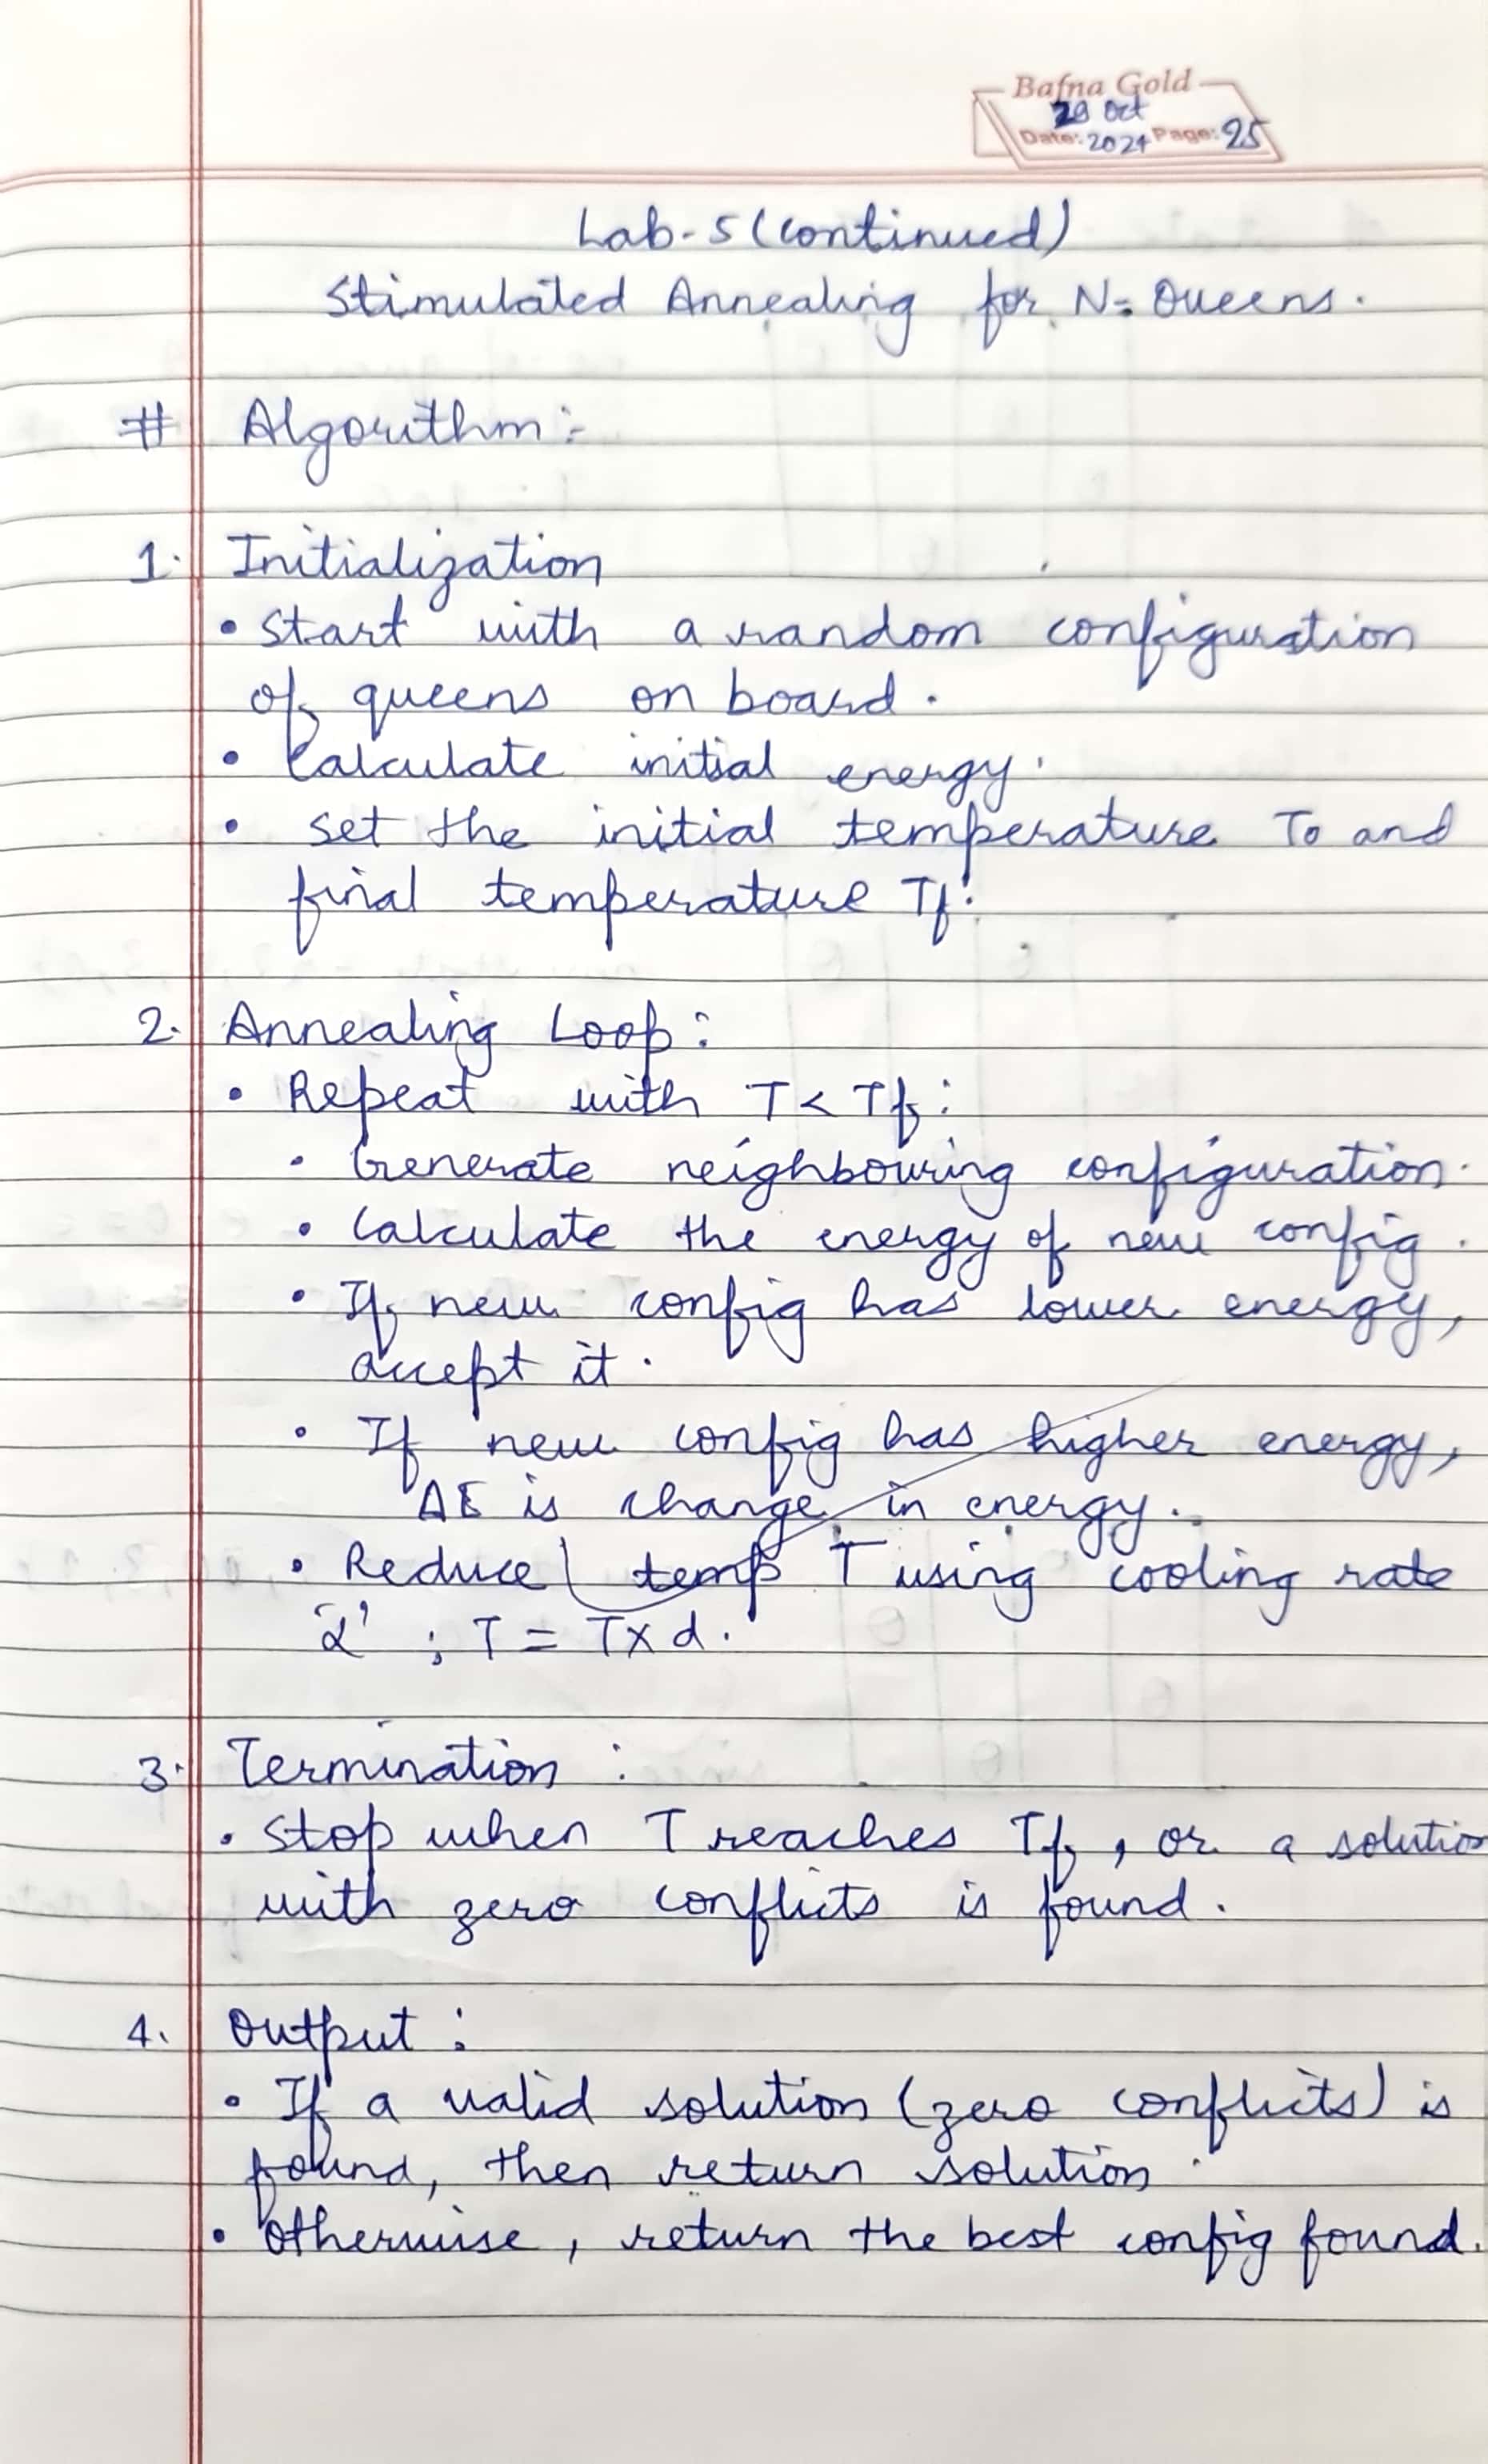 Bafna Gold
29 Oct
Date: 2024 Page: 25
Lab-5 (continued)
Stimulated Annealing for N-Queens.
# Algorithm:-
1. Initialization
• Start with a random configuration
of queens on board.
• Calculate initial energy.
• set the initial temperature To and
final temperature Tf.
2. Annealing Loop:
• Repeat with T < Tf:
• Generate neighbouring configuration.
• Calculate the energy of new config.
• If new config has lower energy,
accept it.
• If new config has higher energy,
ΔE is change in energy.
• Reduce temp T using cooling rate
'α' ; T = T x α.
3. Termination :
• Stop when T reaches Tf, or a solution
with zero conflicts is found.
4. Output :
• If a valid solution (zero conflicts) is
found, then return solution.
• Otherwise, return the best config found.